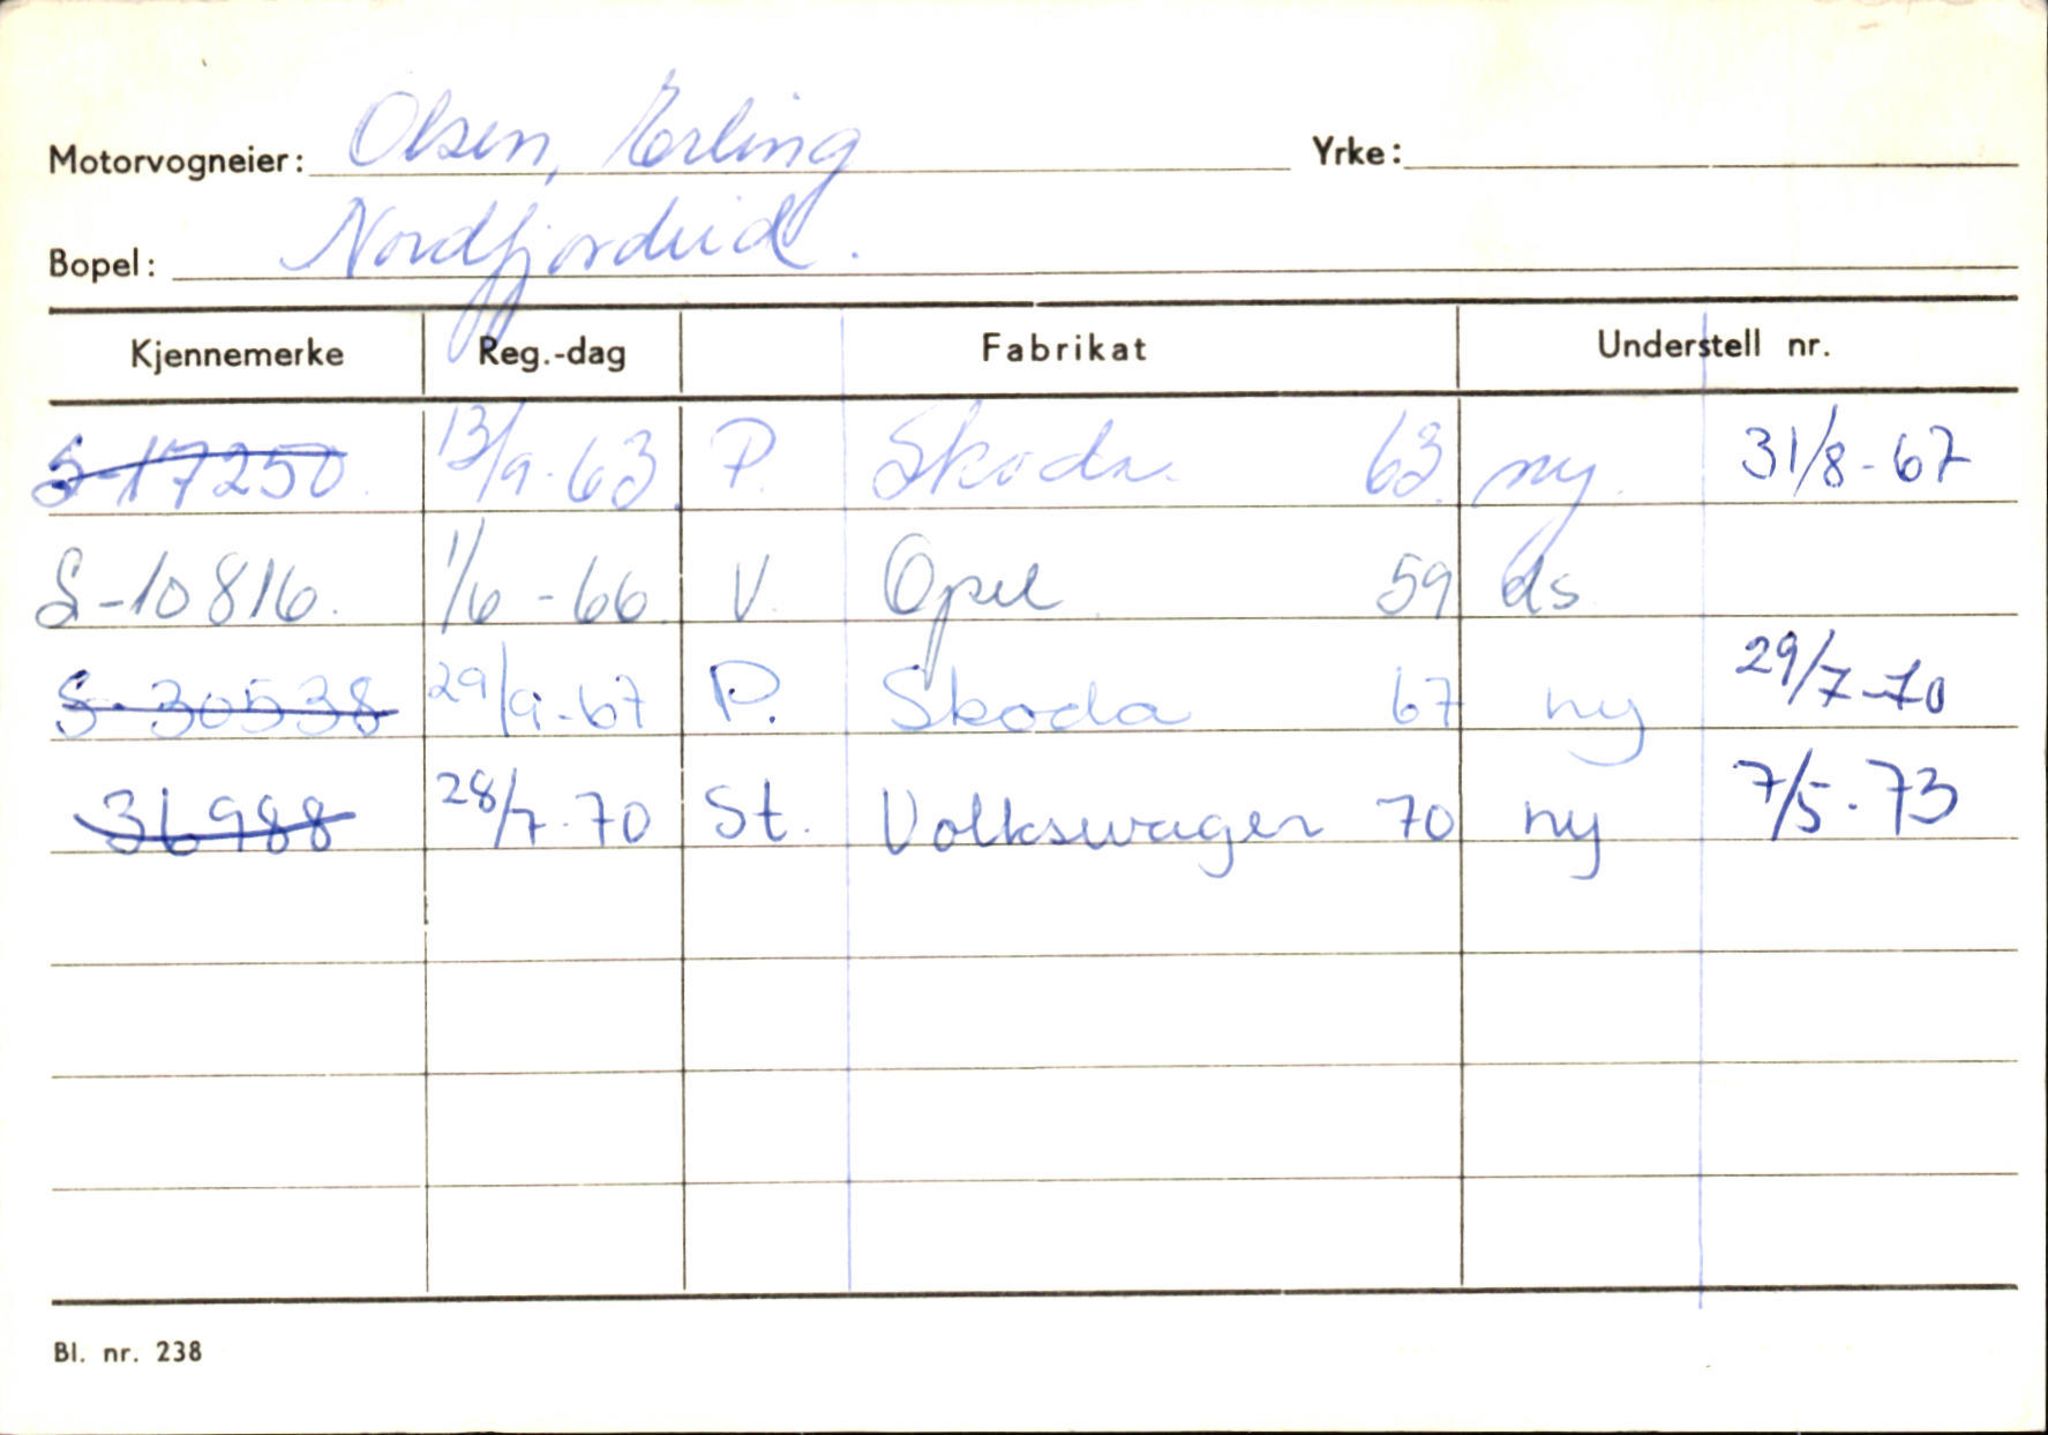 Motorvogneier: Olsen, Erling Yrke:
Bopel: Nordfjordeid.
Kjennemerke Reg.-dag Fabrikat Understell nr.
S-17250. 13/9-63. P. Skoda. 63. ny. 31/8-67
S-10816. 1/6-66. V. Opel. 59 ds
S-30538 29/9-67 P. Skoda 67 ny 29/7-70
36988 28/7-70 St. Volkswagen 70 ny 7/5-73
Bl. nr. 238